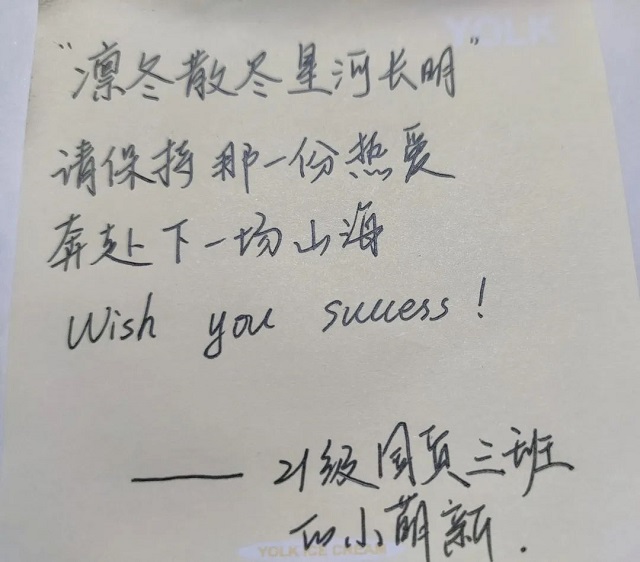 YOLK
"凛冬散尽星河长明"
请保持那一份热爱
奔赴下一场山海
Wish you success!
—— 21级国贸三班
的小萌新.
YOLK ICE CREAM